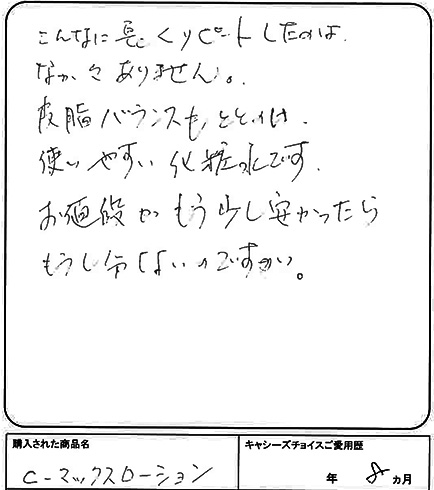 こんなに長くリピートしたのは、
なか々ありません。
皮脂バランスもととのい、
使いやすい化粧水です。
お値段がもう少し安かったら
もうし分しないのですが。
購入された商品名
キャシーズチョイスご愛用歴
C-マックスローション
年 8 ヵ月